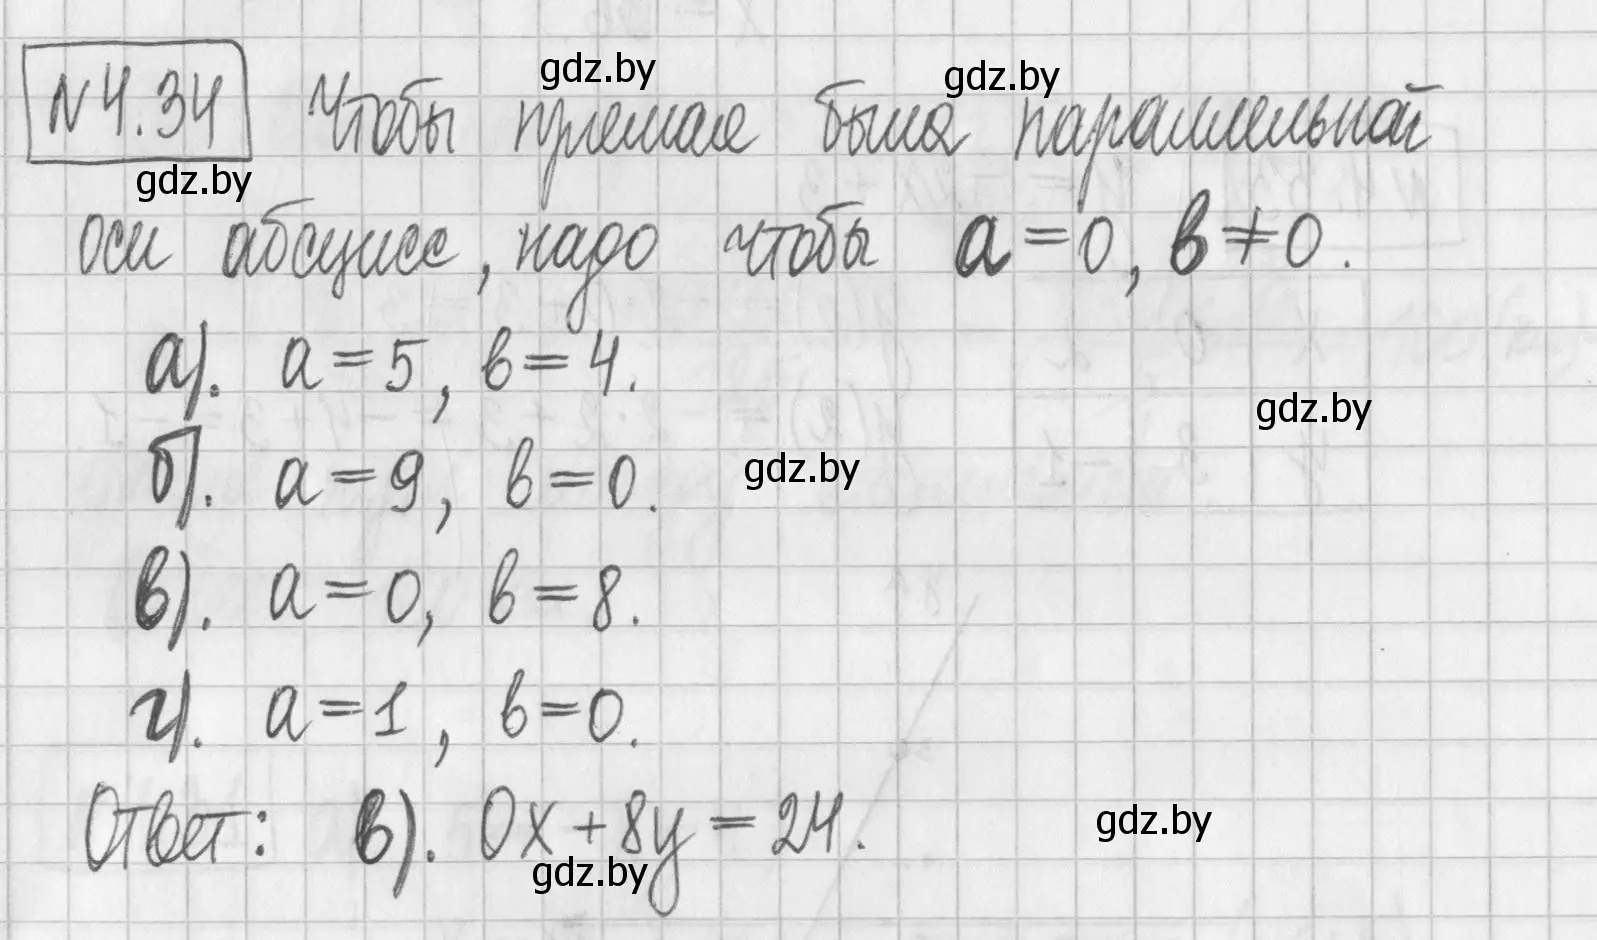 №4.34 Чтобы прямая была параллельной
gdz.by gdz.by
gdz.by
оси абсцисс, надо чтобы a=0, b≠0.
а). a=5, b=4.
gdz.by
б). a=9, b=0.
gdz.by
в). a=0, b=8.
г). a=1, b=0.
Ответ: в). 0x+8y=24.
gdz.by
gdz.by